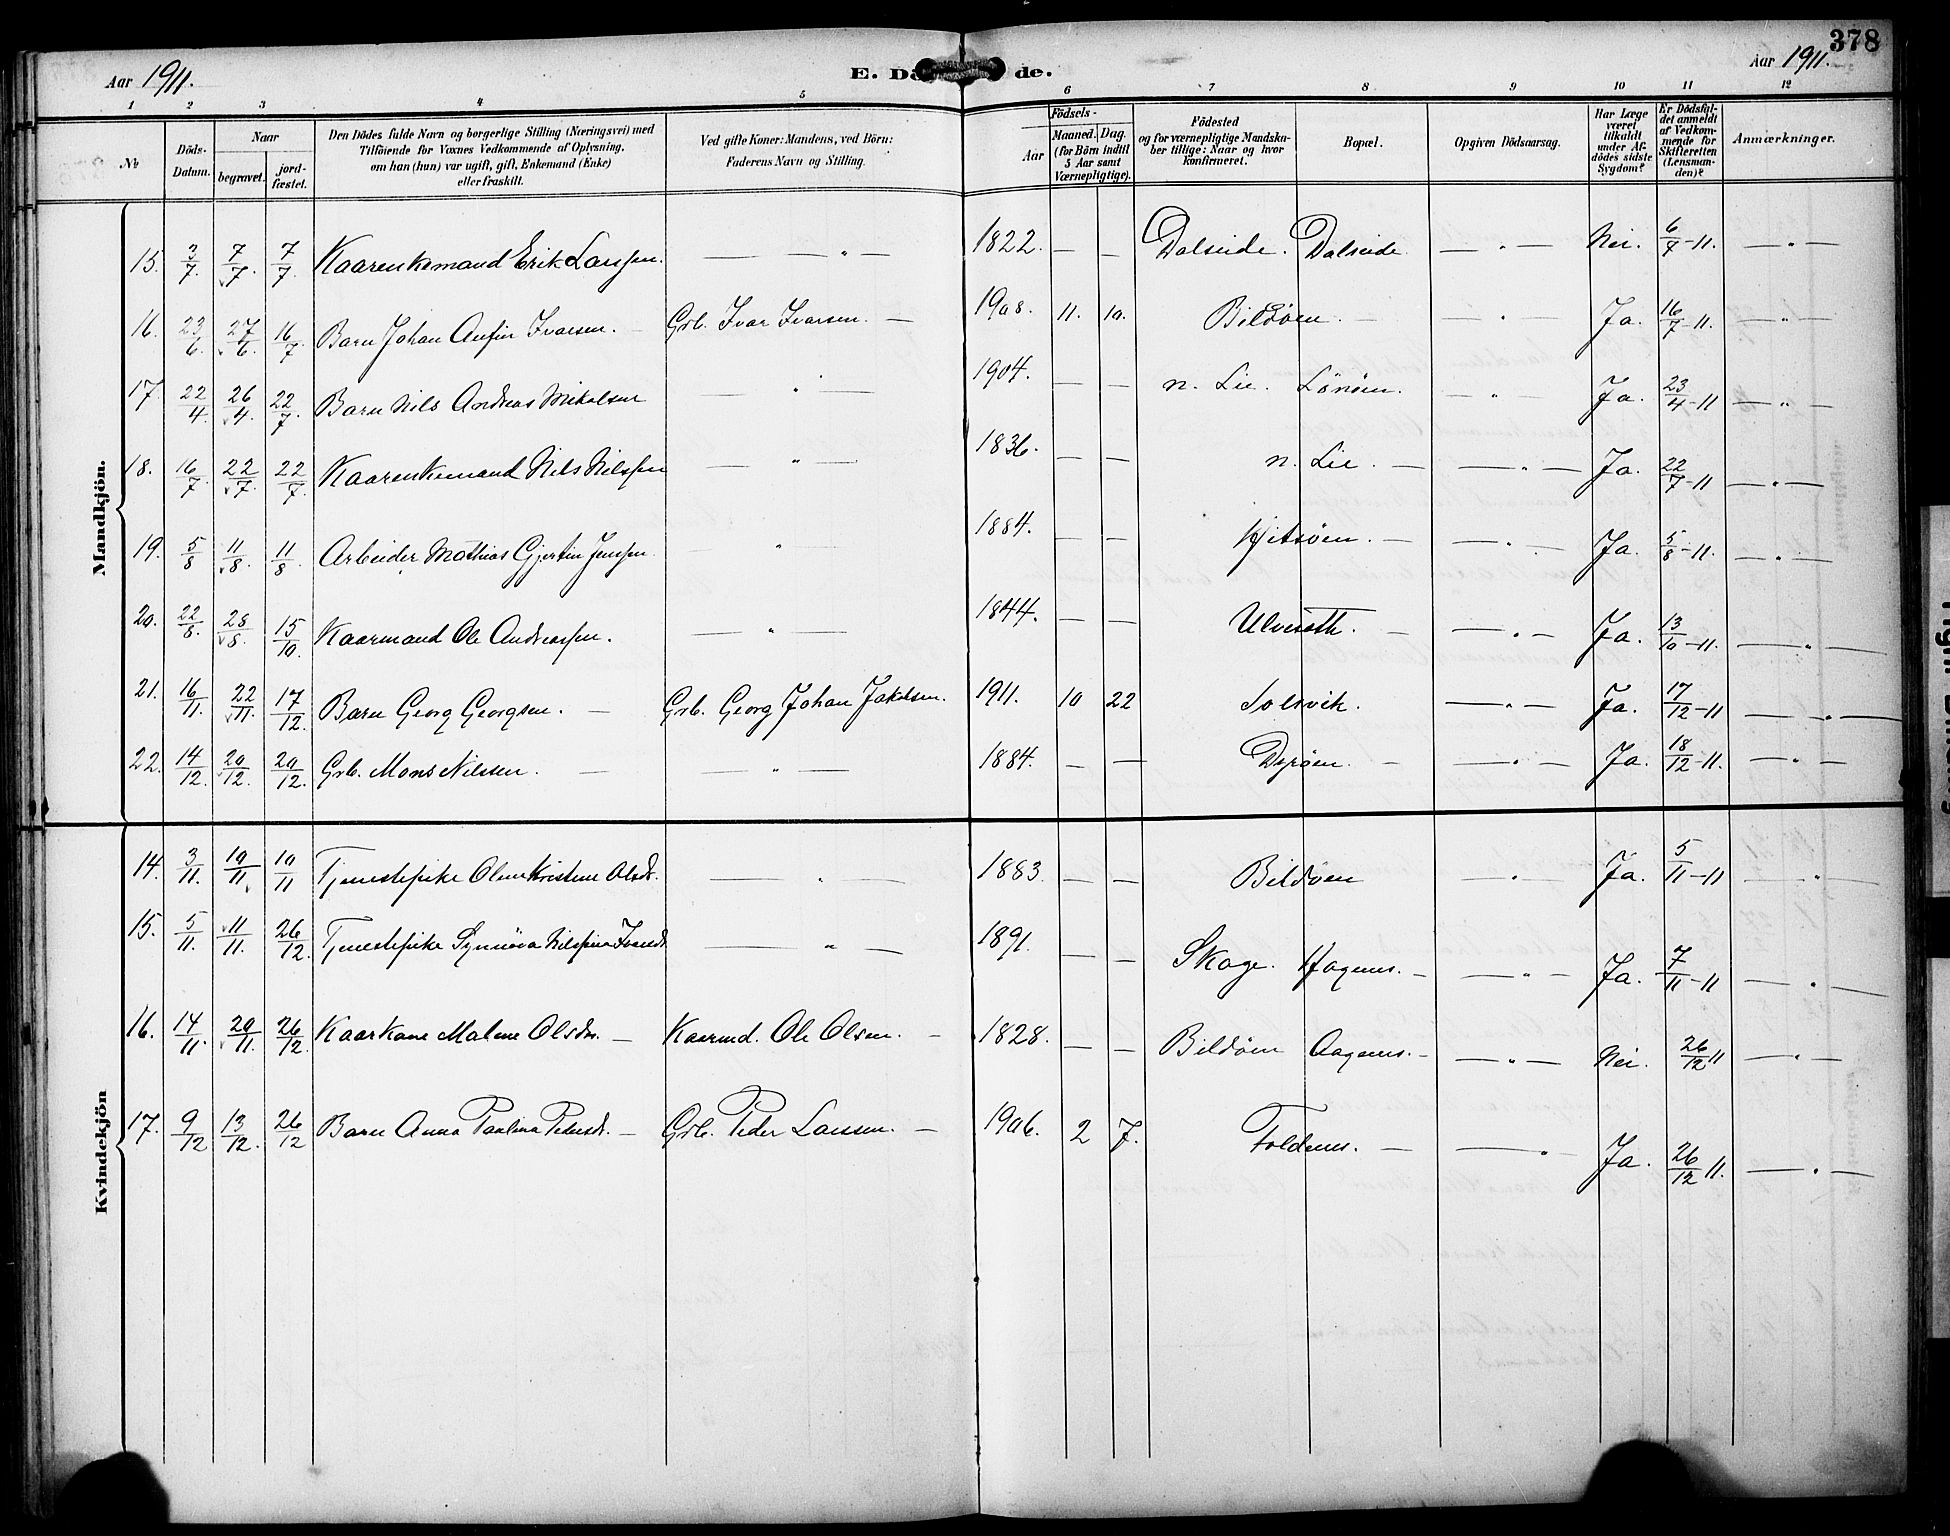 378
Aar 1911.
E. Dø de.
Aar 1911.
1 2 3 4 5 6 7 8 9 10 11 12
No
Döds-Datum.
Naar
begravet.
jord-fæstet.
Den Dödes fulde Navn og borgerlige Stilling (Næringsvei) med
Tilföiende for Voxnes Vedkommende af Oplysning,
om han (hun) var ugift, gift, Enkemand (Enke)
eller fraskilt.
Ved gifte Koner: Mandens, ved Börn:
Faderens Navn og Stilling.
Födsels-
Aar
Maaned. Dag.
(for Börn indtil
5 Aar samt
Værnepligtige).
Födested
og for værnepligtige Mandska-
ber tillige: Naar og hvor
konfirmeret.
Bopæl.
Opgiven Dödsaarsag.
Har Læge
været
tilkaldt
under Af-
dödes sidste
Sygdom?
Er Dödsfal-
det anmeldt
af Vedkom-
mende for
Skifteretten
(Lensman-
den)?
Anmærkninger.
Mandkjön.
15. 3/7. 7/7. 7/7. Kaarenkemand Erik Larssen. — „ — 1822. — — Dalseide. Dalseide. — „ — Nei. 6/7-11. — „ —
16. 23/6. 27/6. 16/7. Barn Johan Anfin Ivarsen. — Grb. Ivar Ivarsen. — 1908. 11. 10. Bildöen. — — „ Ja. 16/7-11. — „ —
17. 22/4. 26/4. 22/7. Barn Nils Andreas Mikalsen — „ — 1904. — — n. Lie. Lönöen. — „ — Ja. 23/4-11 — „ —
18. 16/7. 22/7. 22/7. Kaarenkemand Nils Nilssen — „ — 1836. — — n. Lie. — — „ — Ja. 22/7-11 — „ —
19. 5/8 11/8. 11/8 Arbeider Mathias Gjertin Jenssen — „ — 1884. — — — — „ — Ja. 5/8-11. — „ —
20. 22/8. 28/8. 15/10 Kaarmand Ole Andreassen. — „ — 1844. — — Ulveseth. — — „ — Ja. 13/10-11. — „ —
21. 16/11. 22/11. 17/12. Barn Georg Georgsen. — Grb. Georg Johan Jakobsen. 1911. 10 22 Solsvik. — „ — Ja. 17/12-11 — „ —
22. 14/12. 20/12. 20/12. Grb. Mons Nilssen. — — „ — 1884. — — Dyröen. — — „ — Ja. 18/12-11. — „ —
Kvindekjön
14. 3/11. 10/11. 10/11 Tjenestepike Oline Kristine Olsdr. — „ — 1883. — — Bildöen — „ — Ja. 5/11-11 — „ —
15. 5/11. 11/11. 26/12. Tjenestepike Synnöva Nilssina Ivarsdr. — „ — 1891. — — Skage. Hagenes. — — „ — Ja. 7/11-11 — „ —
16. 14/11. 20/11. 26/12. Kaarkone Malene Olsdr. — Kaarmd. Ole Olsen. — 1828. — — Bildöen Aagenes. — — „ — Nei. 26/12 11 — „ —
17. 9/12 13/12. 26/12 Barn Anna Paulina Pedersdr. — Grb. Peder Larssen. — 1906. 2 7. Foldenes. — — „ Ja. 26/12 11. — „ —